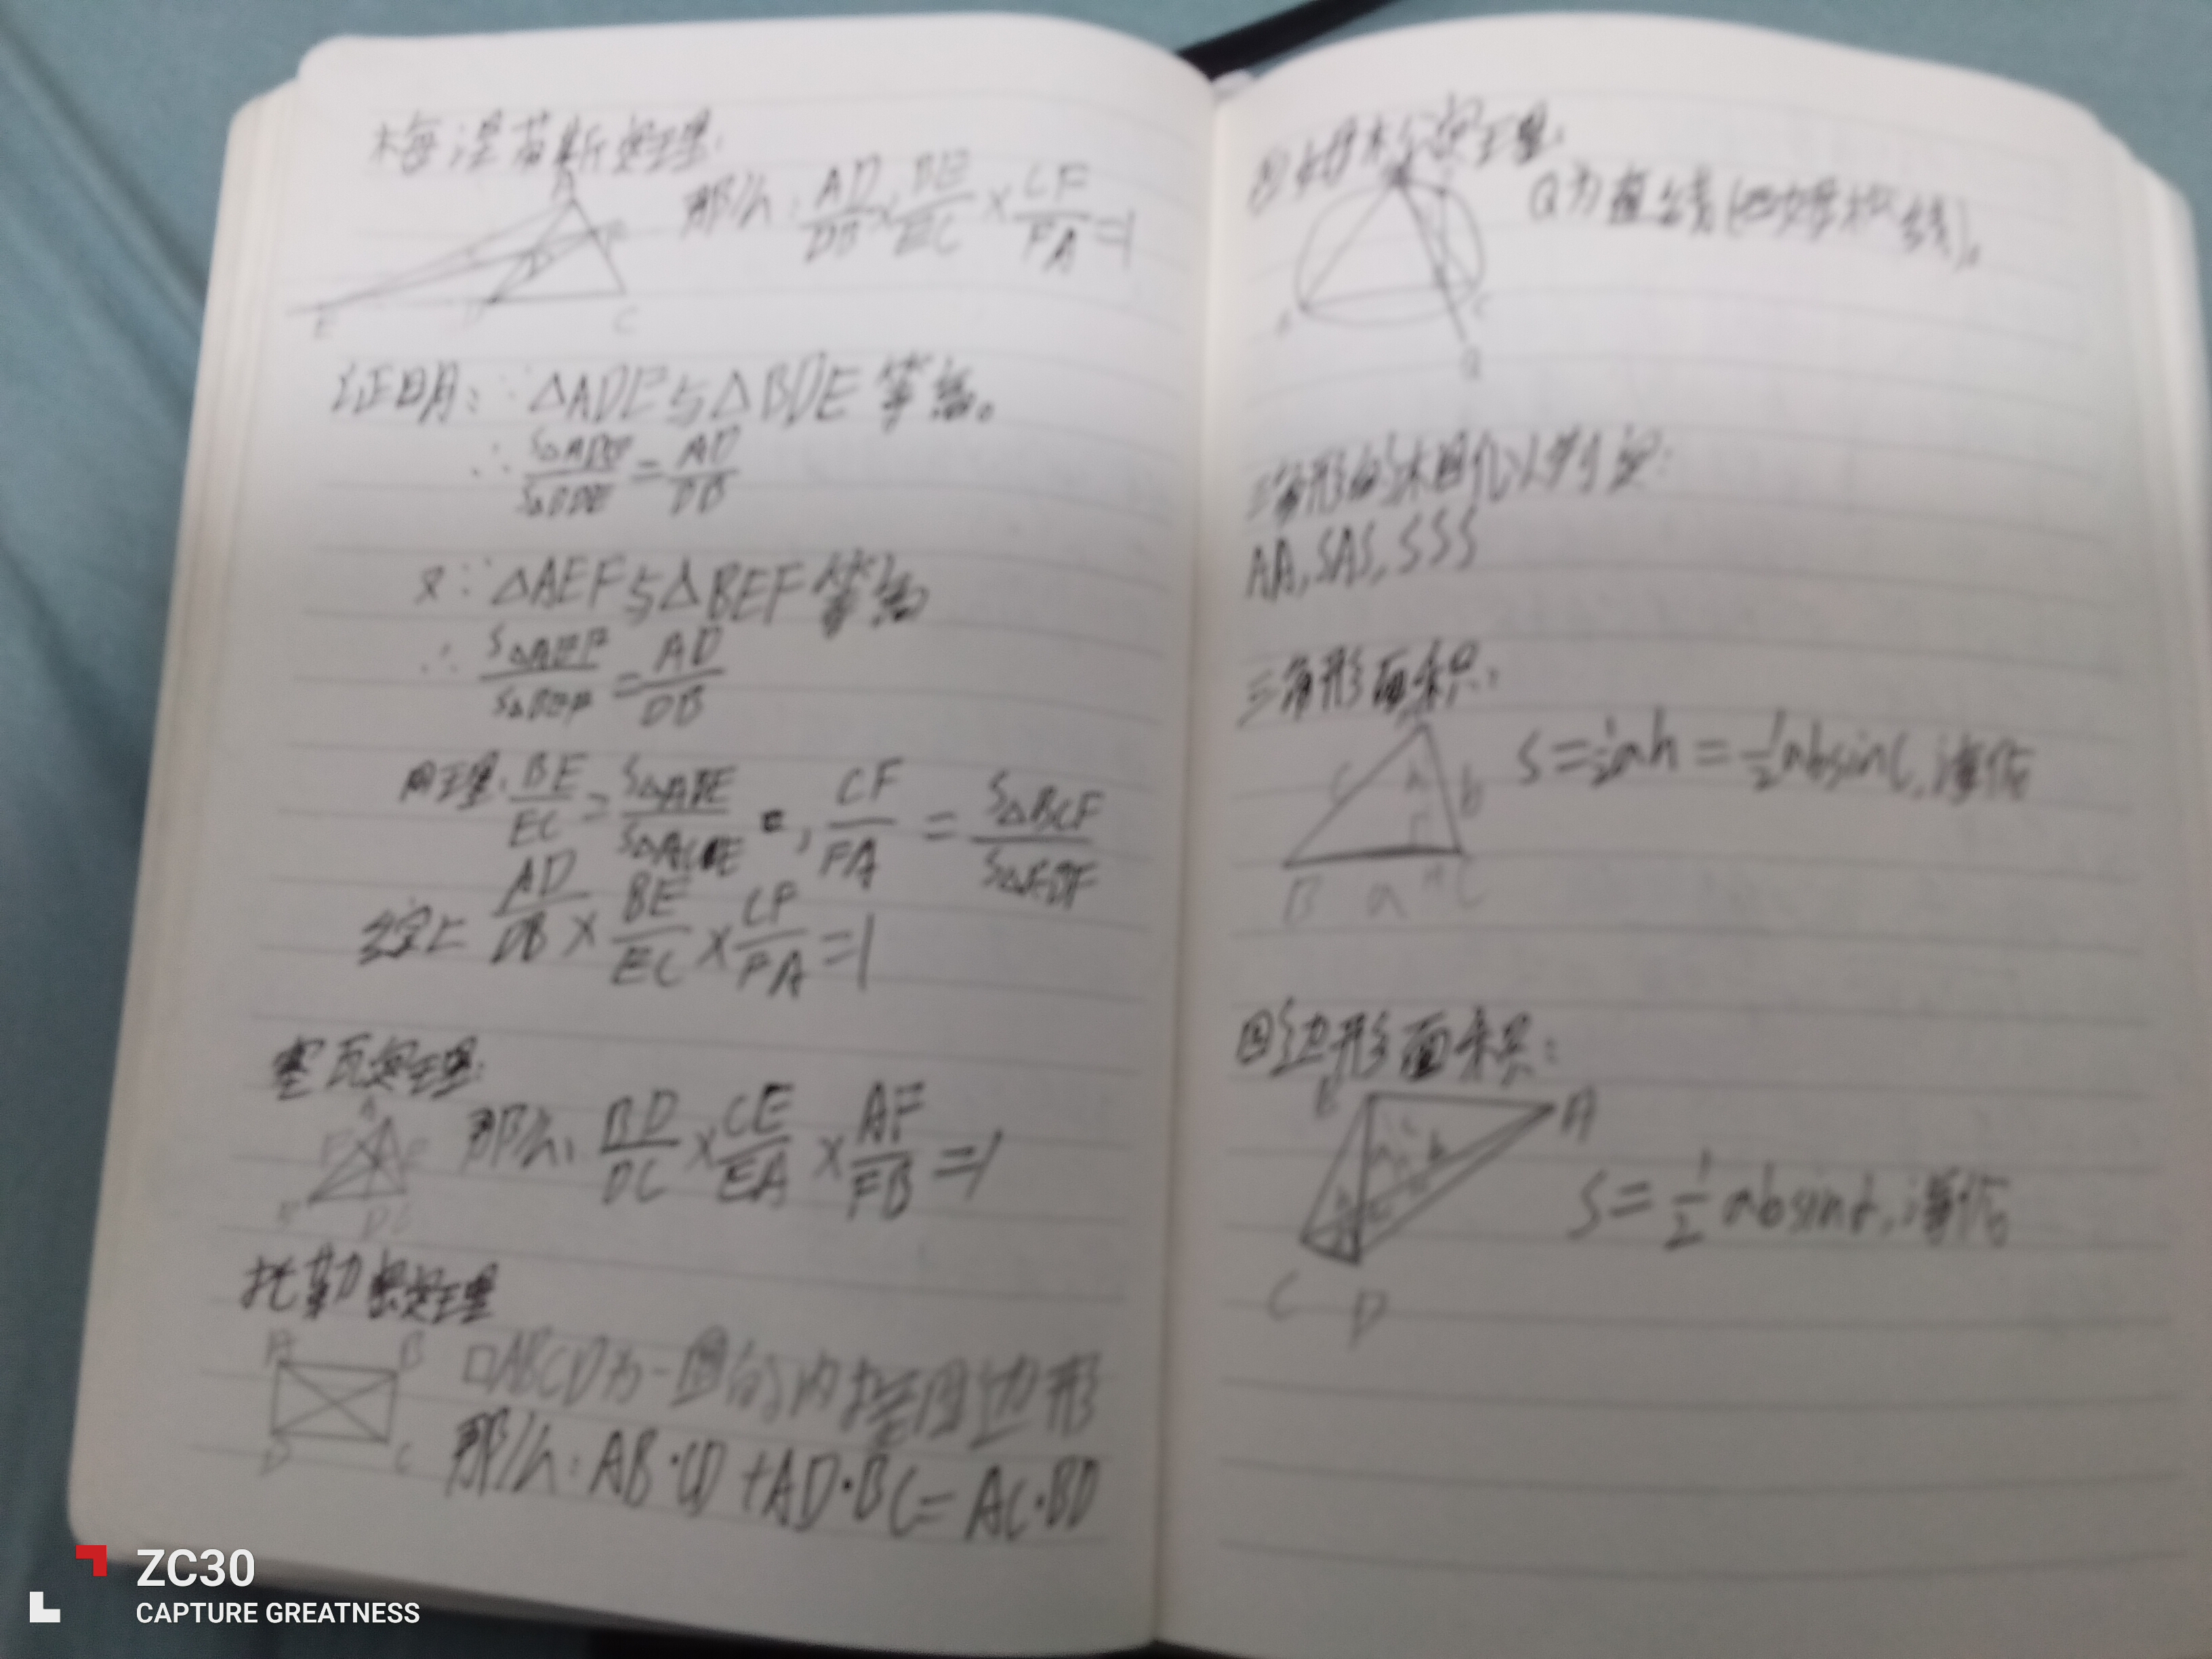 梅涅劳斯定理:
A
那么: AD/DB × BE/EC × CF/FA =1
E
C
证明: ∵ △ADE与△BDE等高。
∴ S△ADE/S△BDE = AD/DB
又∵ △AEF与△BEF等高
∴ S△AEF/S△BEF = AD/DB
同理: BE/EC = S△ABE/S△ACE , CF/FA = S△BCF
综上 AD/DB × BE/EC × CF/FA =1
塞瓦定理:
A
D C
那么: BD/DC × CE/EA × AF/FB =1
托勒密定理
A B
D C
□ABCD为一圆的内接四边形
那么: AB·CD+AD·BC=AC·BD
定理:
Q为直线
三角形的相似判定:
AA, SAS, SSS
三角形面积:
c h b
B a C
S=½ah=½absinC, 海伦
四边形面积:
B A
C D
S=½absin, 海伦
ZC30
CAPTURE GREATNESS